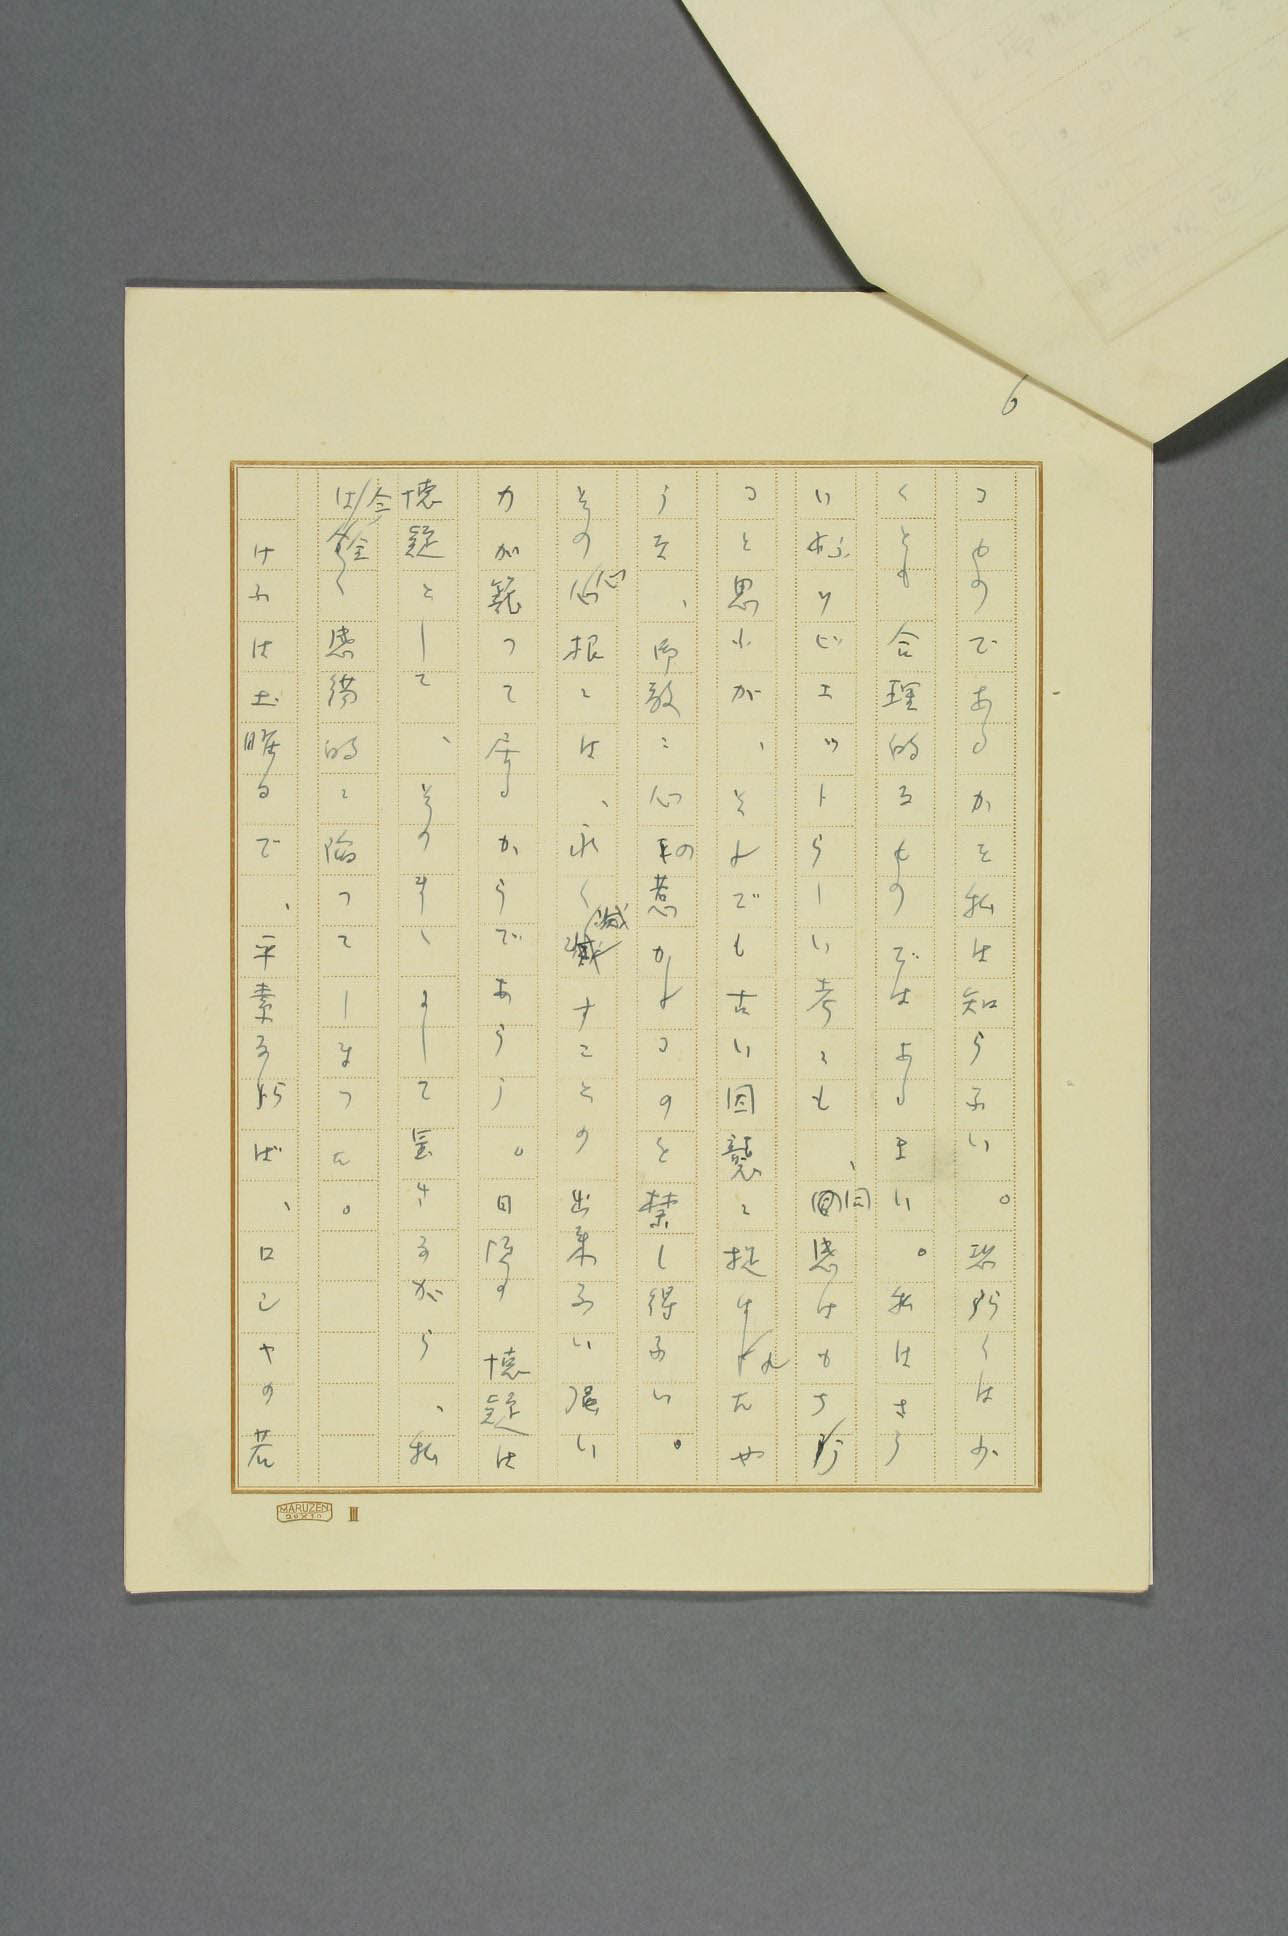 6
つものであるかを私は知らない。恐らくは少
くとも合理的なものではあるまい。私はさう
いふリジエツトらしい考にも、同感はもち
つと思ふが、それでも古い因襲に捉はれたや
うな、師教に心の惹かれるのを禁じ得ない。
その心根には、永く滅すことの出来ない強い
力が籠つて居るからであらう。目隠す懐疑は
懐疑として、そのまゝにして置きながら、私
は全く感傷的に陥つてしまつた。
けふは土曜日で、平素ならば、ロシヤの若
MARUZEN
20×10
III